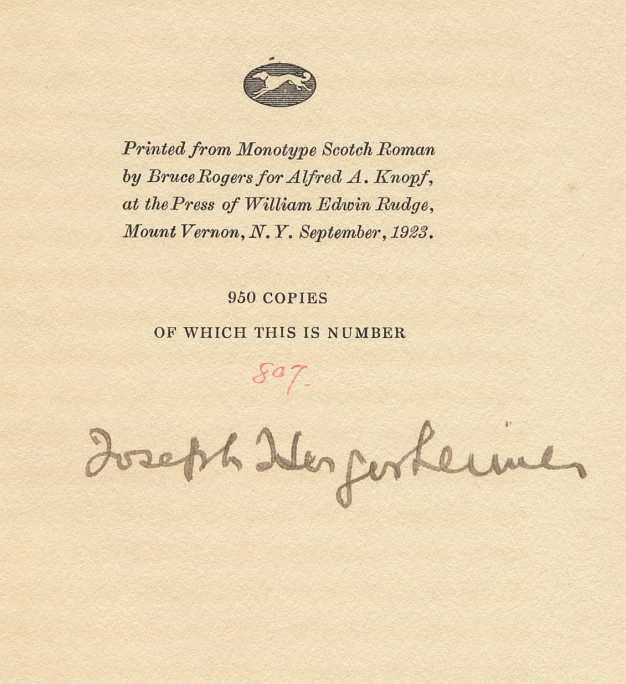 Printed from Monotype Scotch Roman
by Bruce Rogers for Alfred A. Knopf,
at the Press of William Edwin Rudge,
Mount Vernon, N. Y. September, 1923.
950 COPIES
OF WHICH THIS IS NUMBER
807.
Joseph Hergesheimer